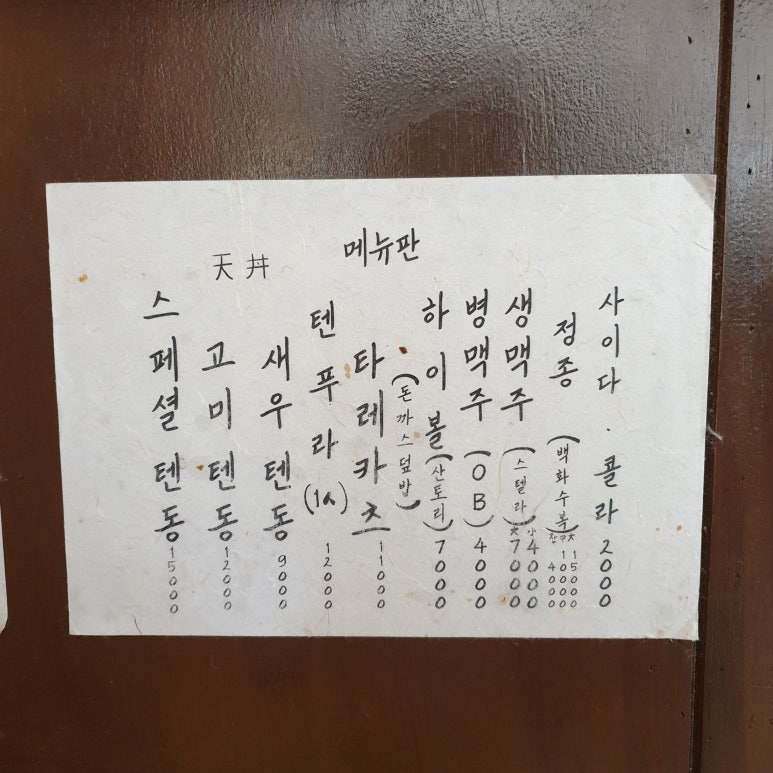 메뉴판
天井
스페셜 텐동 15000
고미텐동 12000
새우텐동 9000
텐푸라 (1人) 12000
타레카츠 11000
(돈까스덮밥)
하이볼 (산토리) 7000
병맥주 (OB) 4000
생맥주 (스텔라) 大 7000 小 4000
정종 (백화수복) 잔 4000 中 10000 大 15000
사이다 · 콜라 2000